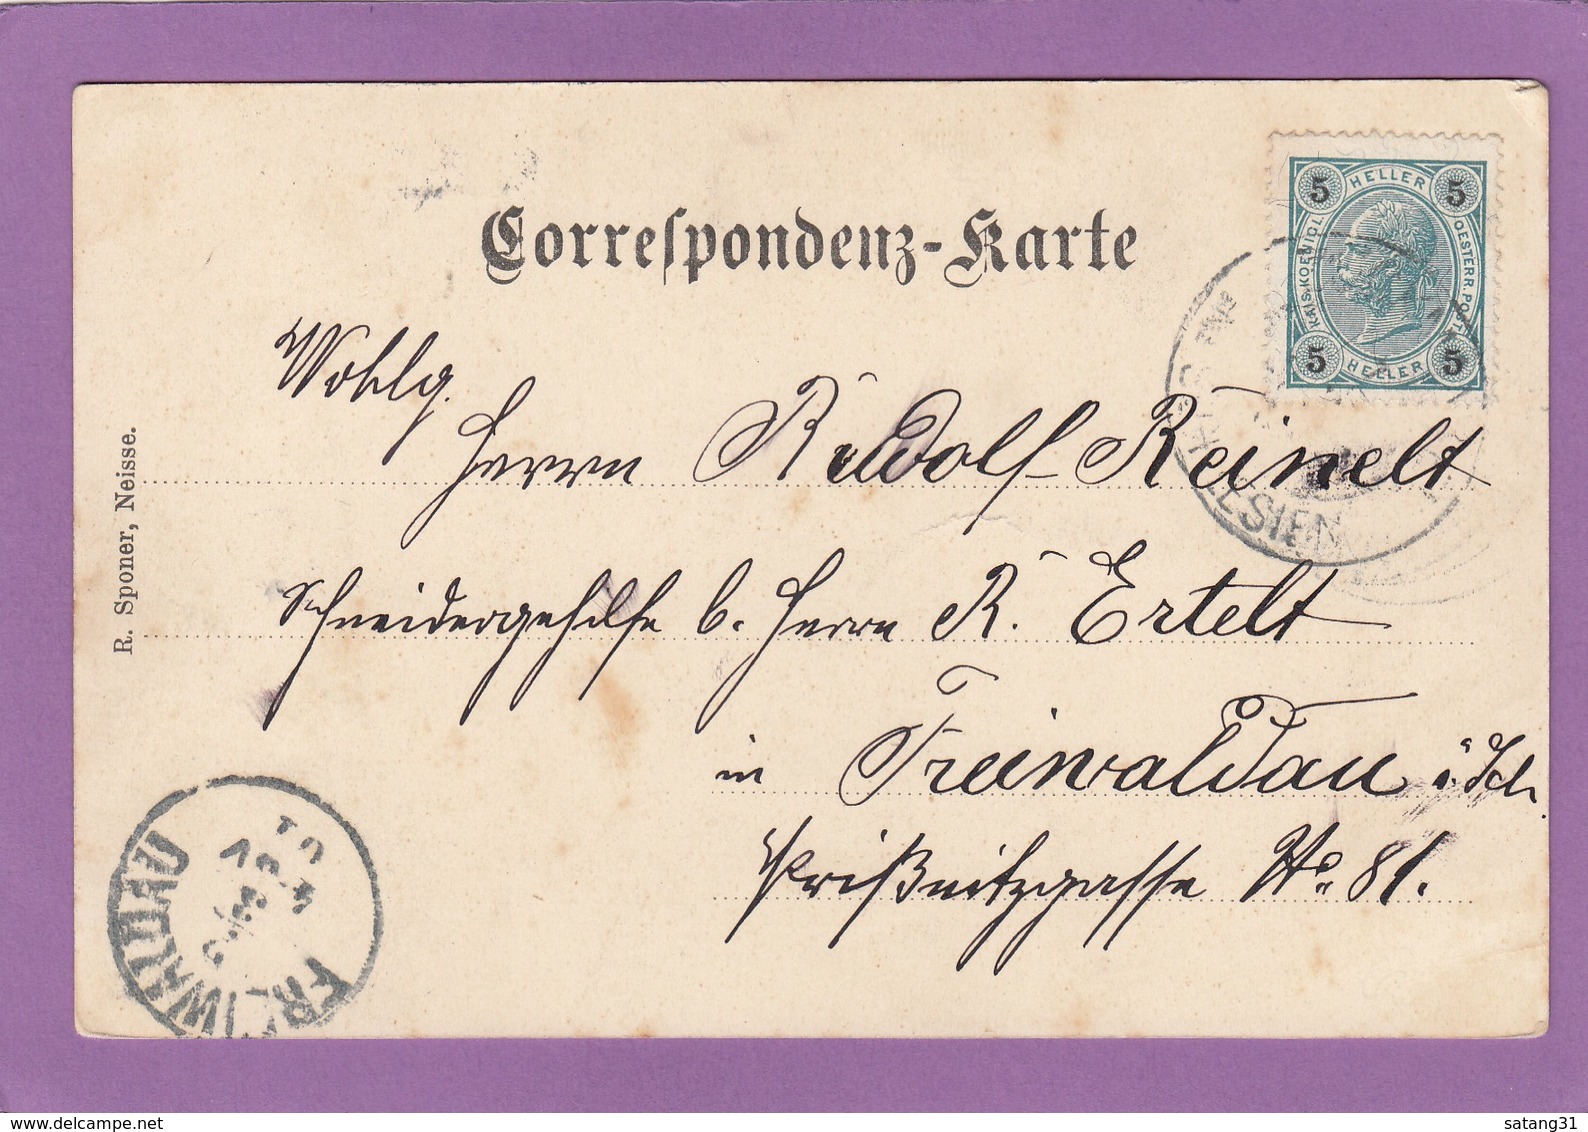 Correspondenz-Karte
5 HELLER 5
KAIS. KOENIGL.
OESTERR. POST
5 HELLER 5
Wohlg.
Herrn Rudolf Reinelt
Schneidergehilfe b. Herrn R. Ertelt
in Freiwaldau i. Sch.
Prißnitzgasse No. 81.
R. Sponer, Neisse.
FREIWALDAU
www.delcampe.net
satang31